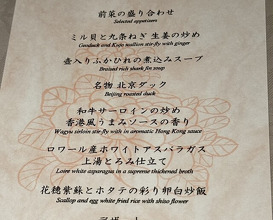 前菜の盛り合わせ
Selected appetizers
ミル貝と九条ねぎ 生姜の炒め
Geoduck and Kujo scallion stir-fry with ginger
壺入りふかひれの煮込みスープ
Braised rich shark fin soup
名物 北京ダック
Beijing roasted duck
和牛サーロインの炒め
香港風うまみソースの香り
Wagyu sirloin stir-fry with in aromatic Hong Kong sauce
ロワール産ホワイトアスパラガス
上湯とろみ仕立て
Loire white asparagus in a supreme thickened broth
花穂紫蘇とホタテの彩り卵白炒飯
Scallop and egg white fried rice with shiso flower